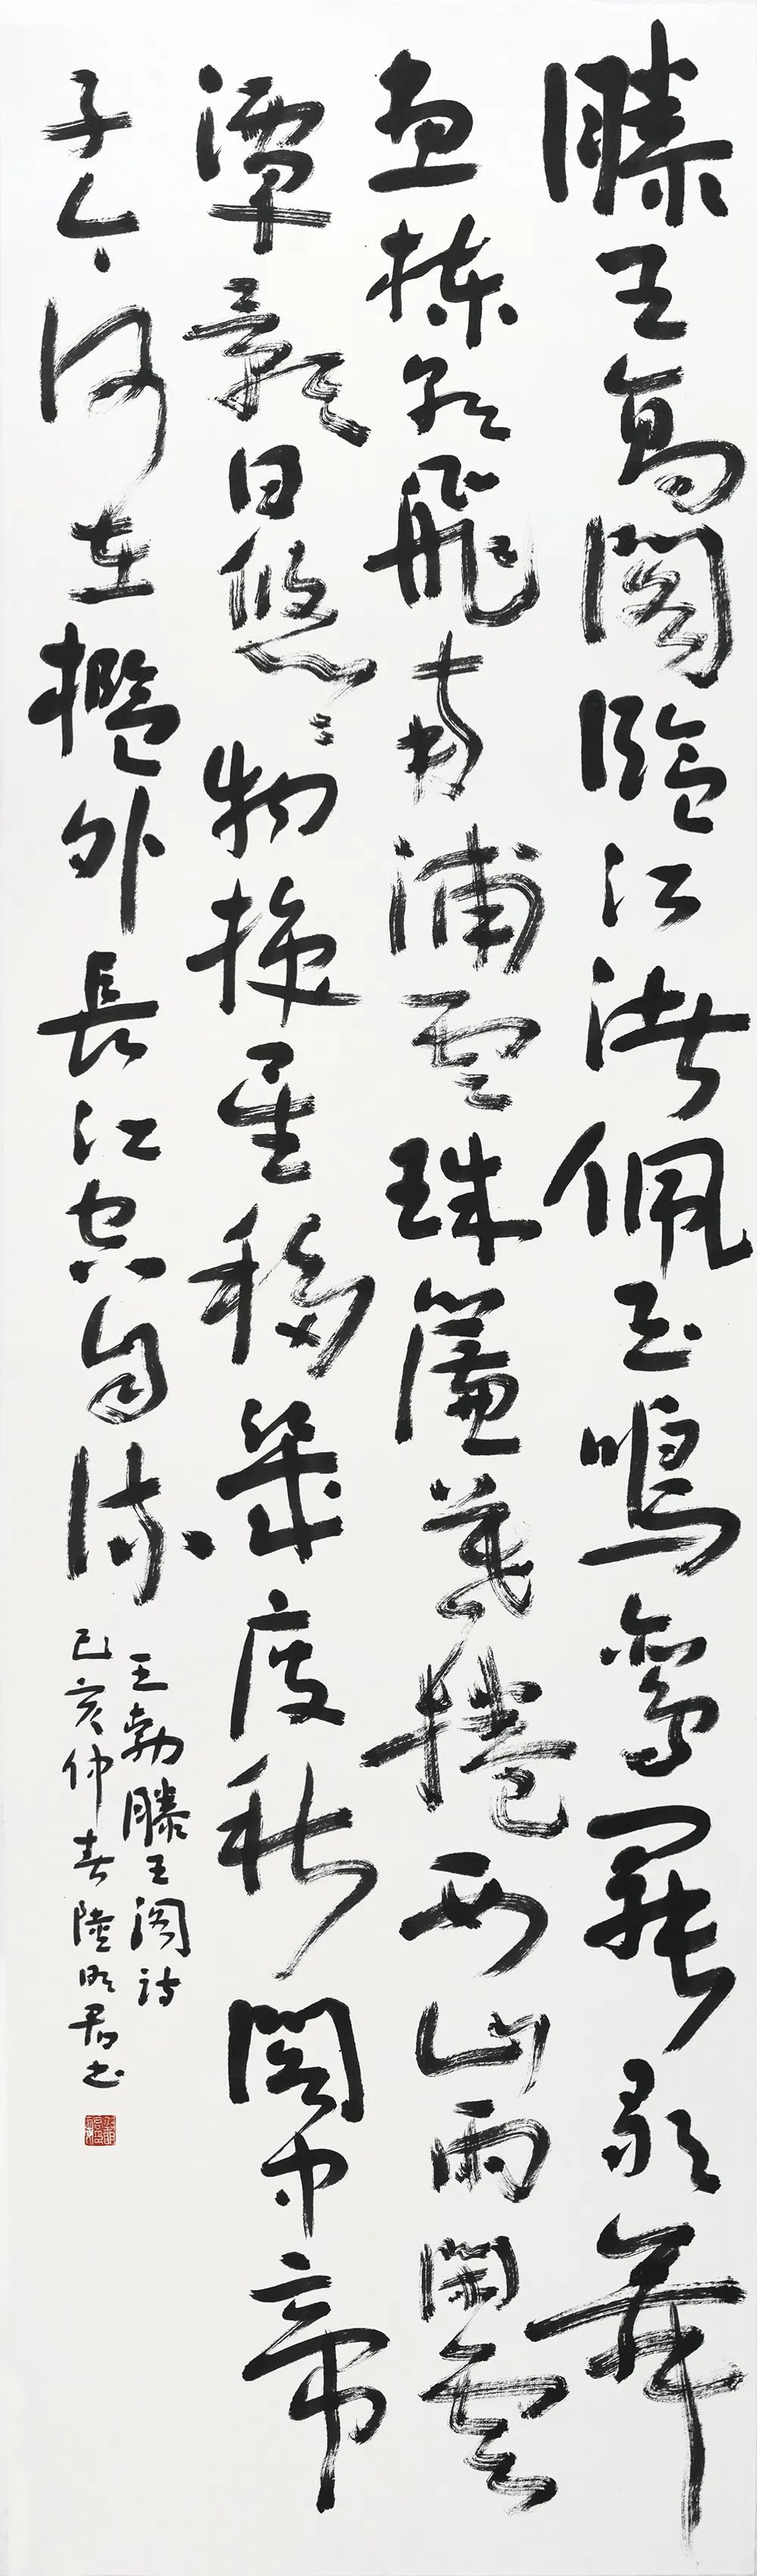 滕王高閣臨江渚佩玉鳴鸞罷歌舞
畫棟朝飛南浦雲珠簾暮捲西山雨閑雲
潭影日悠悠物換星移幾度秋閣中帝
子今何在檻外長江空自流
王勃滕王阁诗
己亥仲春陸明君书